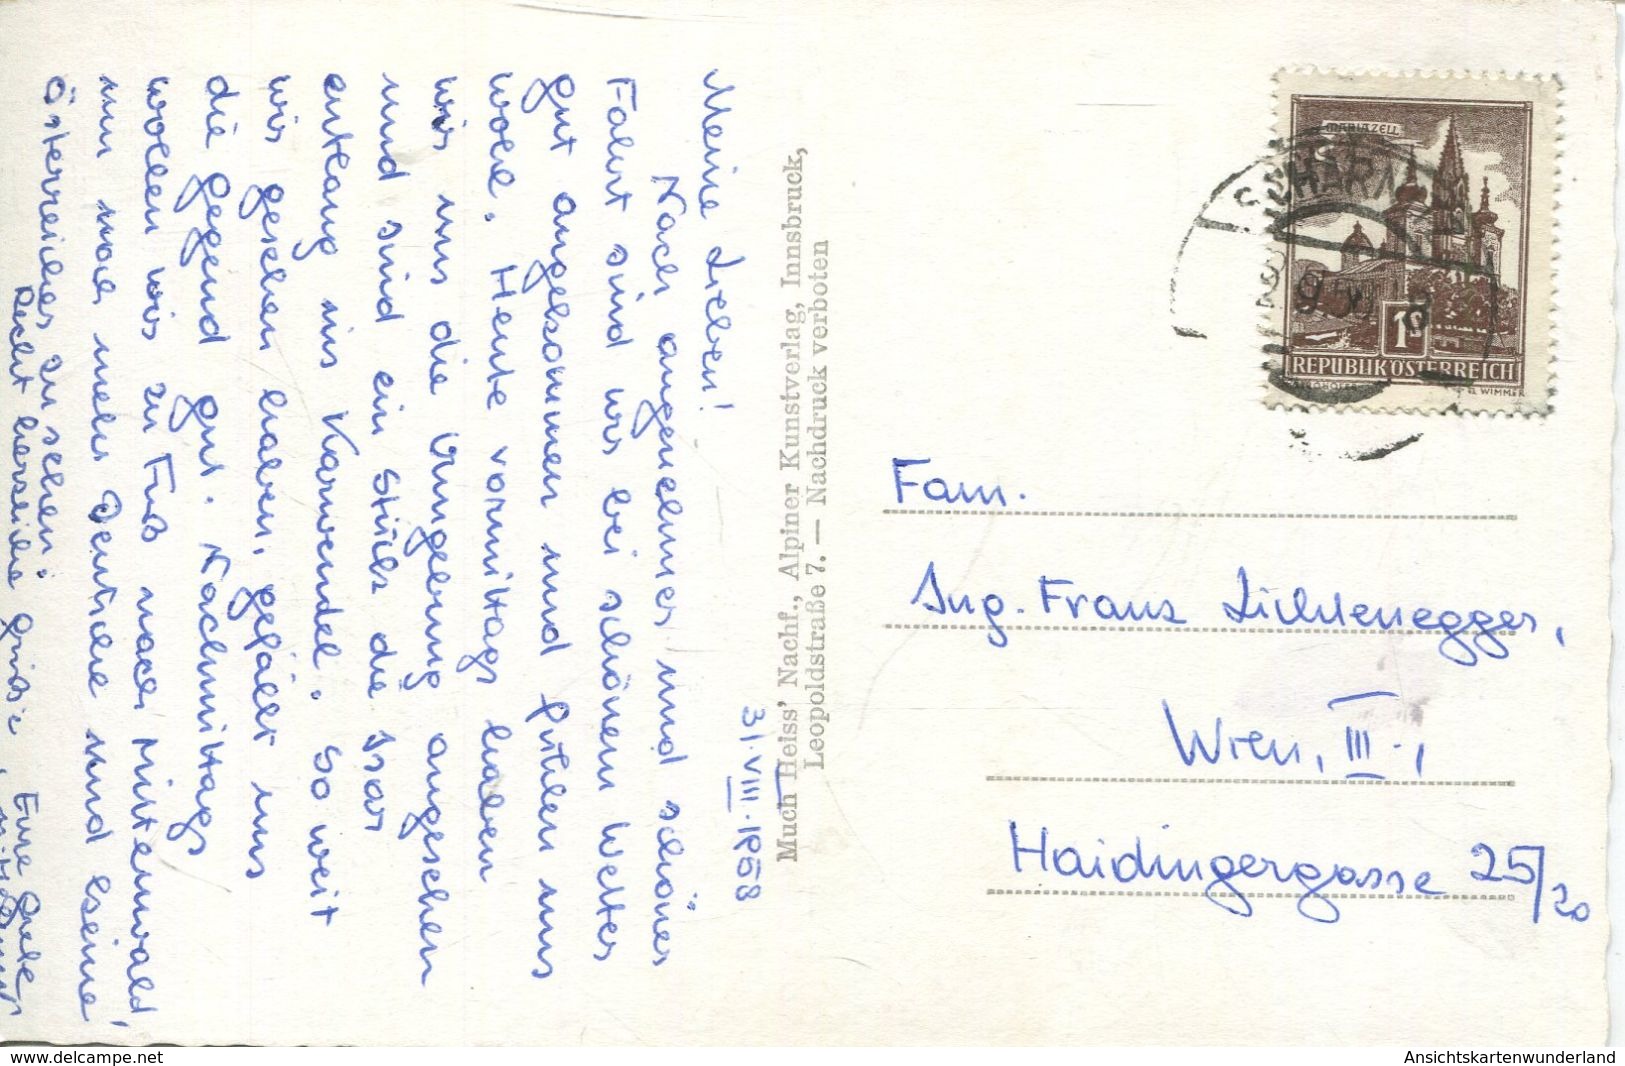 31.VIII.1958
Meine Lieben!
Nach angenehmer und schöner
Fahrt sind wir bei schönem Wetter
gut angekommen und fühlen uns
wohl. Heute vormittags haben
wir uns die Umgebung angesehen
und sind ein Stück die Isar
entlang ins Karwendel. So weit
wir gesehen haben, gefällt uns
die Gegend gut. Nachmittags
wollen wir zu Fuß nach Mittenwald,
um mal mehr Deutsche und keine
Österreicher zu sehen.
Recht herzliche Grüße, Eure Grete
Much Heiss' Nachf., Alpiner Kunstverlag, Innsbruck,
Leopoldstraße 7. — Nachdruck verboten
MARIAZELL
SCHARN
1S
REPUBLIK ÖSTERREICH
WIMMER
Fam.
Ing. Franz Lichtenegger,
Wien, III.,
Haidingergasse 25/20
www.delcampe.net
Ansichtskartenwunderland